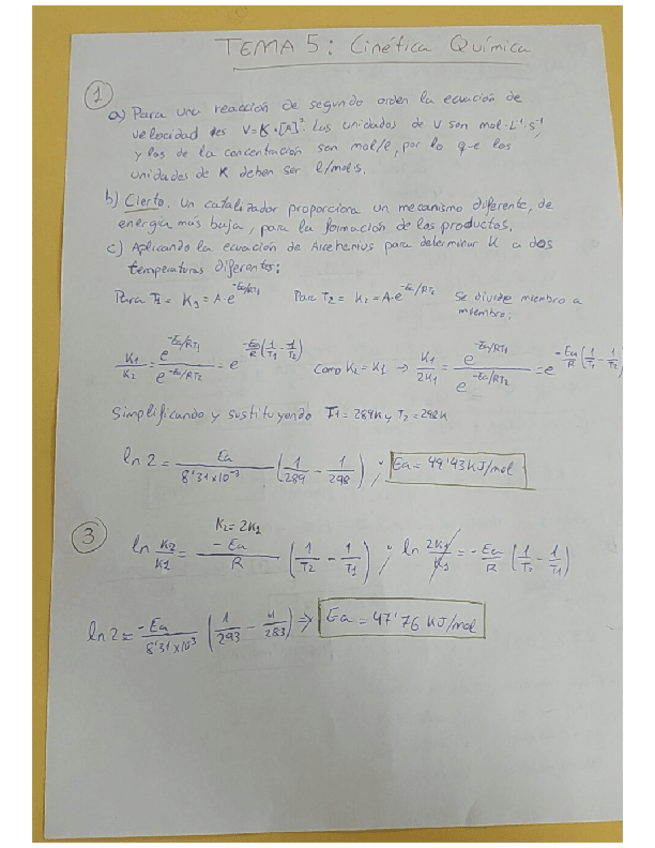 TEMA 5: Cinética Química
1
a) Para una reacción de segundo orden la ecuación de
velocidad es V=K·[A]². Las unidades de V son mol·L⁻¹·s⁻¹
y las de la concentración son mol/l, por lo que las
unidades de K deben ser l/mol·s.
b) Cierto. Un catalizador proporciona un mecanismo diferente, de
energía más baja, para la formación de los productos.
c) Aplicando la ecuación de Arrhenius para determinar K a dos
temperaturas diferentes:
Para T₁ = K₁ = A·e^(-Ea/RT₁) Para T₂ = K₂ = A·e^(-Ea/RT₂) Se divide miembro a
miembro:
K₁/K₂ = e^(-Ea/RT₁)/e^(-Ea/RT₂) = e^(-Ea/R (1/T₁ - 1/T₂)) Como K₂=K₁ → K₁/2K₁ = e^(-Ea/RT₁)/e^(-Ea/RT₂) = e^(-Ea/R (1/T₁ - 1/T₂))
Simplificando y sustituyendo T₁ = 289K y T₂ = 298K
ln 2 = Ea/8'31x10⁻³ (1/289 - 1/298) ; Ea = 49'43 KJ/mol
3
K₂=2K₁
ln K₂/K₁ = -Ea/R (1/T₂ - 1/T₁) ; ln 2K₁/K₁ = -Ea/R (1/T₂ - 1/T₁)
ln 2 = -Ea/8'31x10⁻³ (1/293 - 1/283) ⇒ Ea = 47'76 KJ/mol